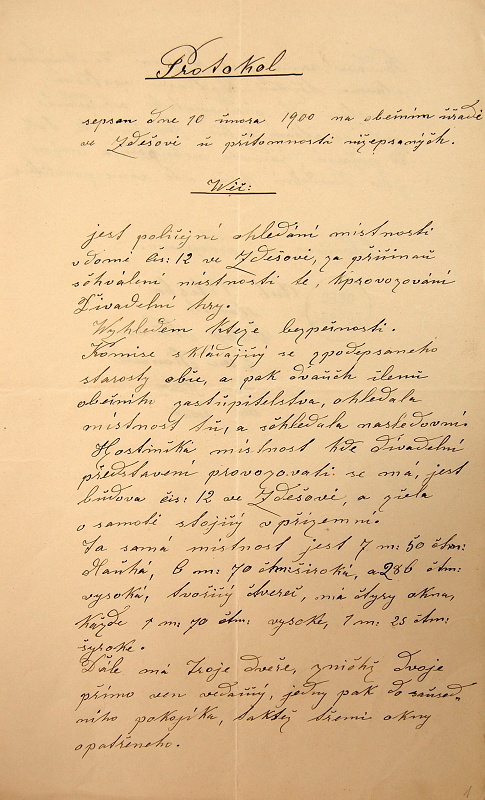 Protokol
sepsán dne 10 února 1900 na obečním úřadě
ve Zdešově u přítomnosti nížepsaných.
Wěč:
jest policejní ohledání místnosti
v domě čís: 12 ve Zdešově, za příčinou
schválení místnosti té, kprovozování
Divadelní hry.
Wyhledem kteže bezpečnosti.
Komise skládajíyý se zpodepsaného
starosty obce, a pak dvauch členů
obečního zastupitelstva, ohledala
místnost tu, a sohledala nasledovní.
Hostinská místnost kde divadelní
představení provozovati se má, jest
budova čís: 12 ve Zdešově, a zcela
o samotě stojíyý v přízemní.
Ta samá místnost jest 7 m: 50 čtm:
dlauhá, 6 m: 70 čtm: široká, a 286 čtm:
vysoká, tvoříyý čtvereč, má čtyry okna,
každe 1 m: 70 čtm: vysoke, 1 m: 25 čtm:
šyroke.
Dále má troje dveře, znichž dvoje
přímo ven vedauyý, jedny pak do saused-
ního pokojíka, taktež třemi okny
opatřeného.
1